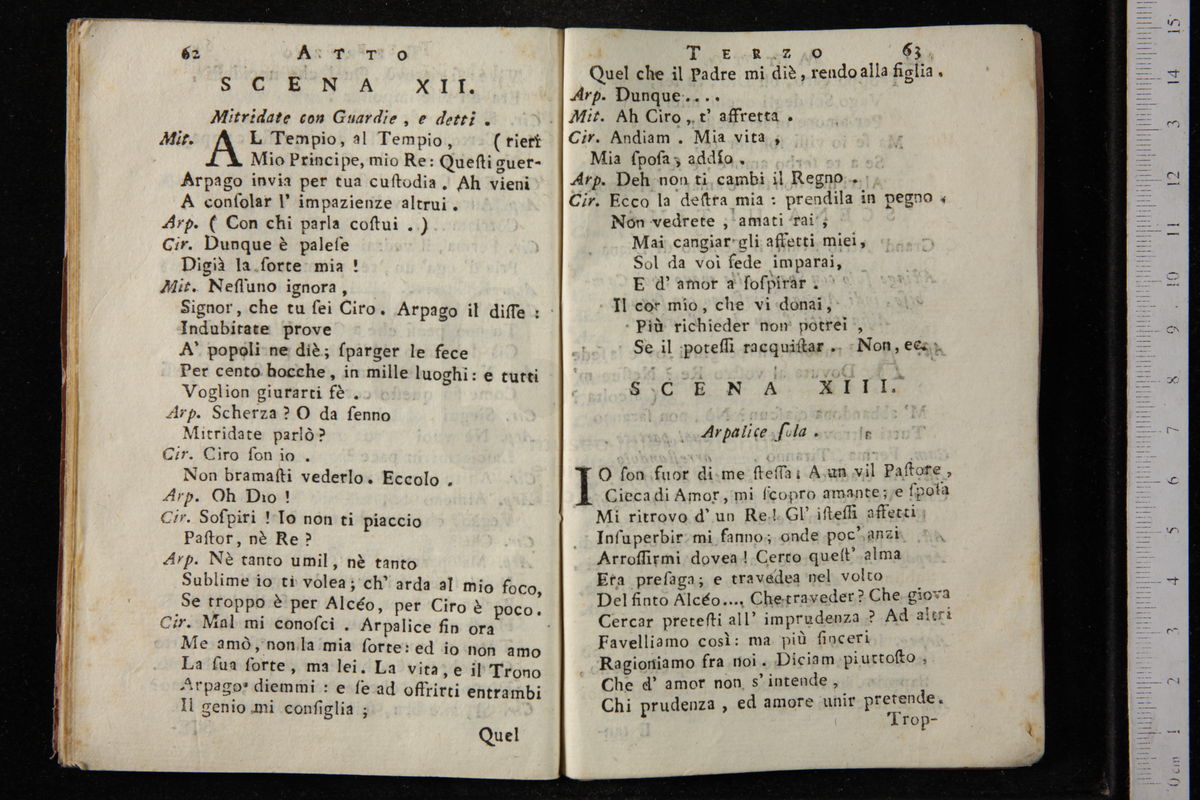 62 ATTO
SCENA XII.
Mitridate con Guardie, e detti.
Mit. AL Tempio, al Tempio, (rieri
Mio Principe, mio Re: Queſti guer-
Arpago invia per tua cuſtodia. Ah vieni
A conſolar l' impazienze altrui.
Arp. (Con chi parla coſtui.)
Cir. Dunque è paleſe
Digià la ſorte mia!
Mit. Neſſuno ignora,
Signor, che tu ſei Ciro. Arpago il diſſe:
Indubitate prove
A' popoli ne diè; ſparger le fece
Per cento bocche, in mille luoghi: e tutti
Voglion giurarti fè.
Arp. Scherza? O da ſenno
Mitridate parlò?
Cir. Ciro ſon io.
Non bramaſti vederlo. Eccolo.
Arp. Oh DIO!
Cir. Soſpiri! Io non ti piaccio
Paſtor, nè Re?
Arp. Nè tanto umil, nè tanto
Sublime io ti volea; ch' arda al mio foco,
Se troppo è per Alcéo, per Ciro è poco.
Cir. Mal mi conoſci. Arpalice fin ora
Me amò, non la mia ſorte: ed io non amo
La ſua ſorte, ma lei. La vita, e il Trono
Arpago diemmi: e ſe ad offrirti entrambi
Il genio mi conſiglia;
Quel
TERZO 63
Quel che il Padre mi diè, rendo alla figlia.
Arp. Dunque....
Mit. Ah Ciro, t' affretta.
Cir. Andiam. Mia vita,
Mia ſpoſa, addio.
Arp. Deh non ti cambi il Regno.
Cir. Ecco la deſtra mia: prendila in pegno.
Non vedrete, amati rai,
Mai cangiar gli affetti miei,
Sol da voi fede imparai,
E d' amor a ſoſpirar.
Il cor mio, che vi donai,
Più richieder non potrei,
Se il poteſſi racquiſtar. Non, ec.
SCENA XIII.
Arpalice ſola.
IO ſon fuor di me ſteſſa. A un vil Paſtore,
Cieca di Amor, mi ſcopro amante; e ſpoſa
Mi ritrovo d' un Re! Gl' iſteſſi affetti
Inſuperbir mi fanno; onde poc' anzi
Arroſſirmi dovea! Certo queſt' alma
Era preſaga; e travedea nel volto
Del finto Alcéo.... Che traveder? Che giova
Cercar preteſti all' imprudenza? Ad altri
Favelliamo così: ma più ſinceri
Ragioniamo fra noi. Diciam piuttoſto,
Che d' amor non s' intende,
Chi prudenza, ed amore unir pretende.
Trop-